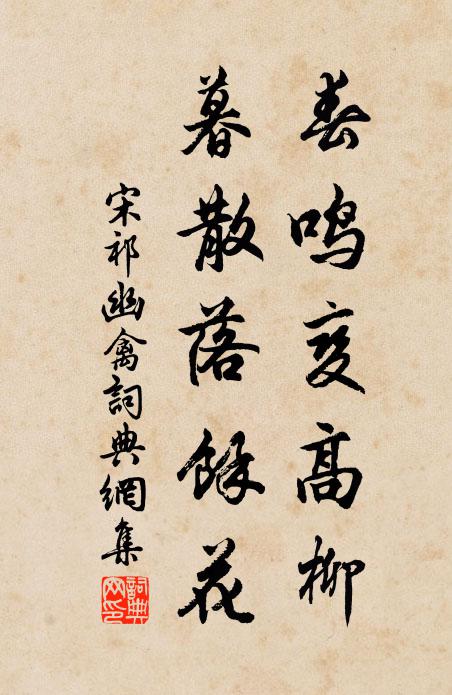 春鸣变高柳
暮散落馀花
宋祁幽禽詞典網集
詞典網印